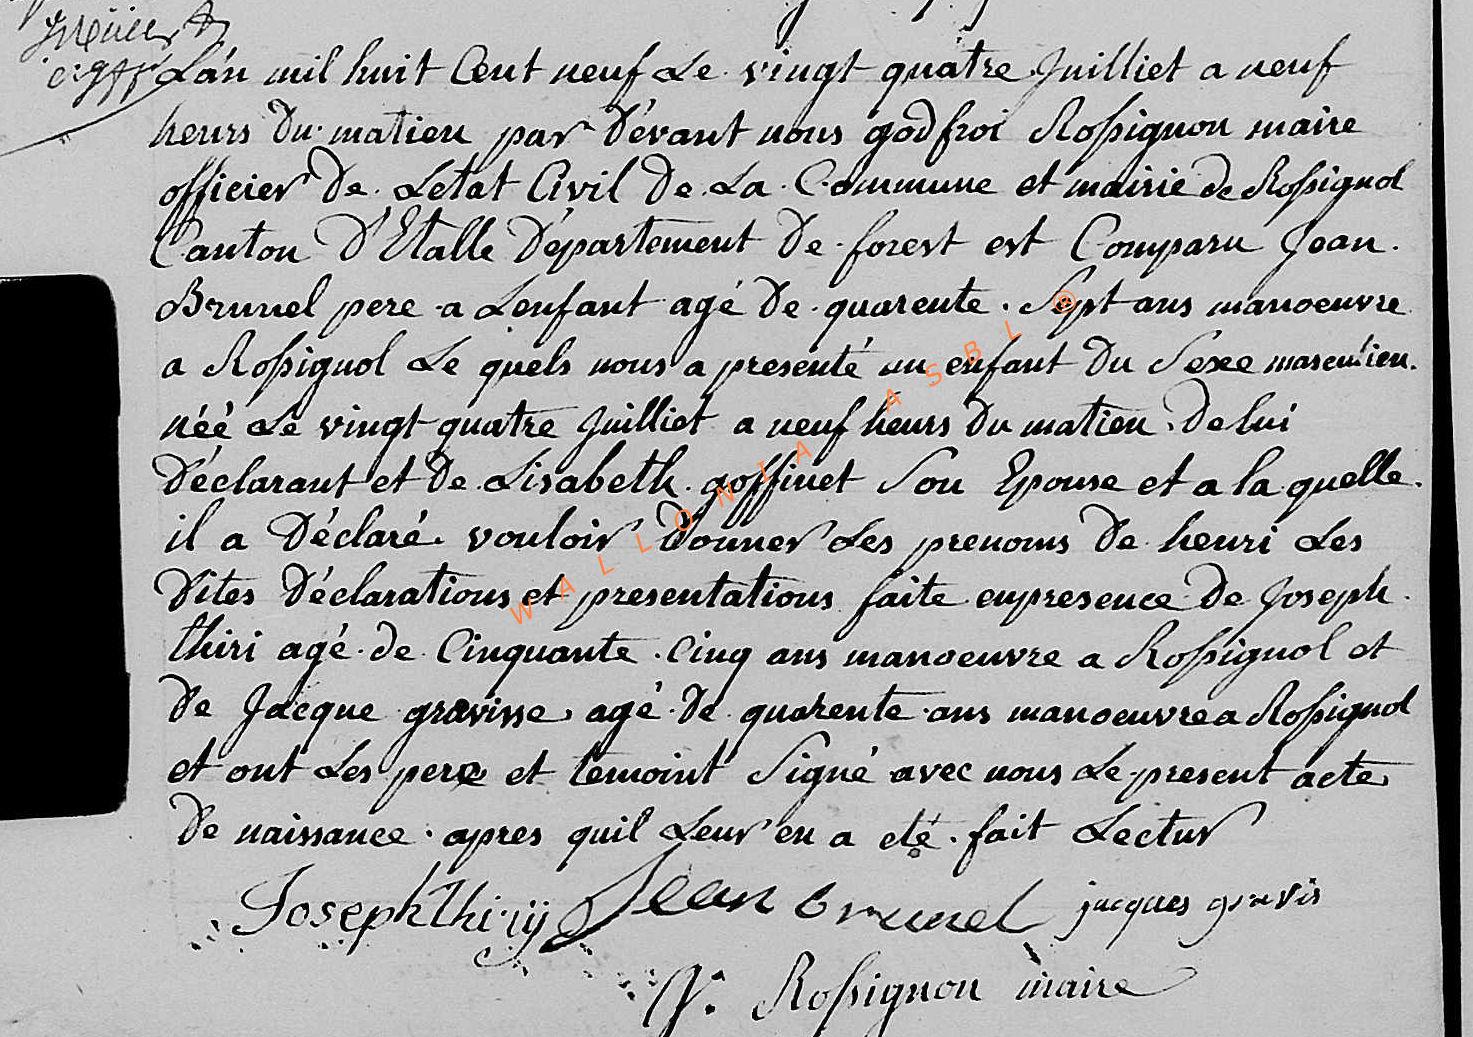 L'án mil huit Cent neuf Le vingt quatre Juilliet a neuf
heurs du matien par dévant nous godfroi Rossignon maire
officier de Létat Civil de La Commune et mairie de Rossignol
Canton d'Etalle Département de forest est Comparu Jean
Brunel pere a Lenfant agé de quarente Sept ans manoeuvre
a Rossignol Le quels nous a presenté un enfant du Sexe masculien
néé Le vingt quatre Juilliet a neuf heurs du matien de lui
déclarant et de Lisabeth goffinet Son Epouse et a la quelle
il a déclaré vouloir donner Les prenoms de henri Les
dites déclarations et presentations faite enpresence de Joseph
thiri agé de Cinquante Cinq ans manoeuvre a Rossignol et
de Jacque gravisse agé de quarente ans manoeuvre a Rossignol
et ont Les pere et temoint Signé avec nous Le present acte
de naissance apres quil Leur en a eté fait Lectur
Joseph Thiryÿ Jean brunel jacques gravis
Rossignon maire
WALLONIA ASBL ®